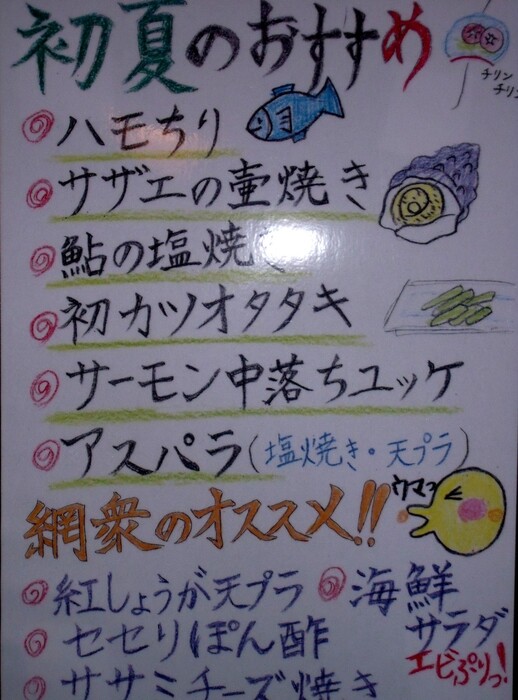 初夏のおすすめ
チリン
チリン
ハモちり
サザエの壷焼き
鮎の塩焼き
初カツオタタキ
サーモン中落ちユッケ
アスパラ(塩焼き・天プラ)
ウマっ
網衆のオススメ!!
紅しょうが天プラ
海鮮
サラダ
エビぷりっ!
セセリぽん酢
ササミチーズ焼き